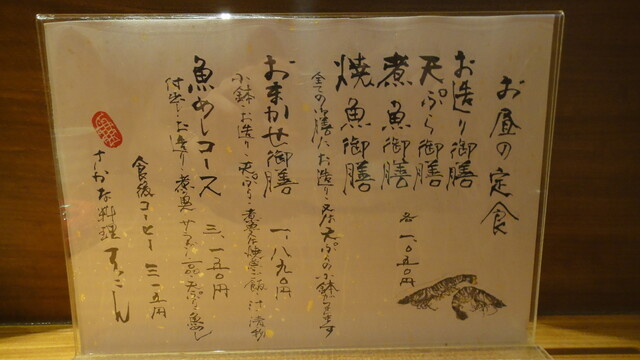 お昼の定食
お造り御膳
天ぷら御膳
煮魚御膳
焼魚御膳
各一、〇五〇円
全ての御膳に、お造り、又は天ぷらの小鉢が付きます
おまかせ御膳
一、八九〇円
小鉢・お造り・天ぷら・煮魚又は焼魚・ご飯・汁・漬物
魚めしコース
三、一五〇円
付出し・お造り・煮魚
サラダ
天ぷら・魚めし
食後コーヒー 三一五円
さかな料理